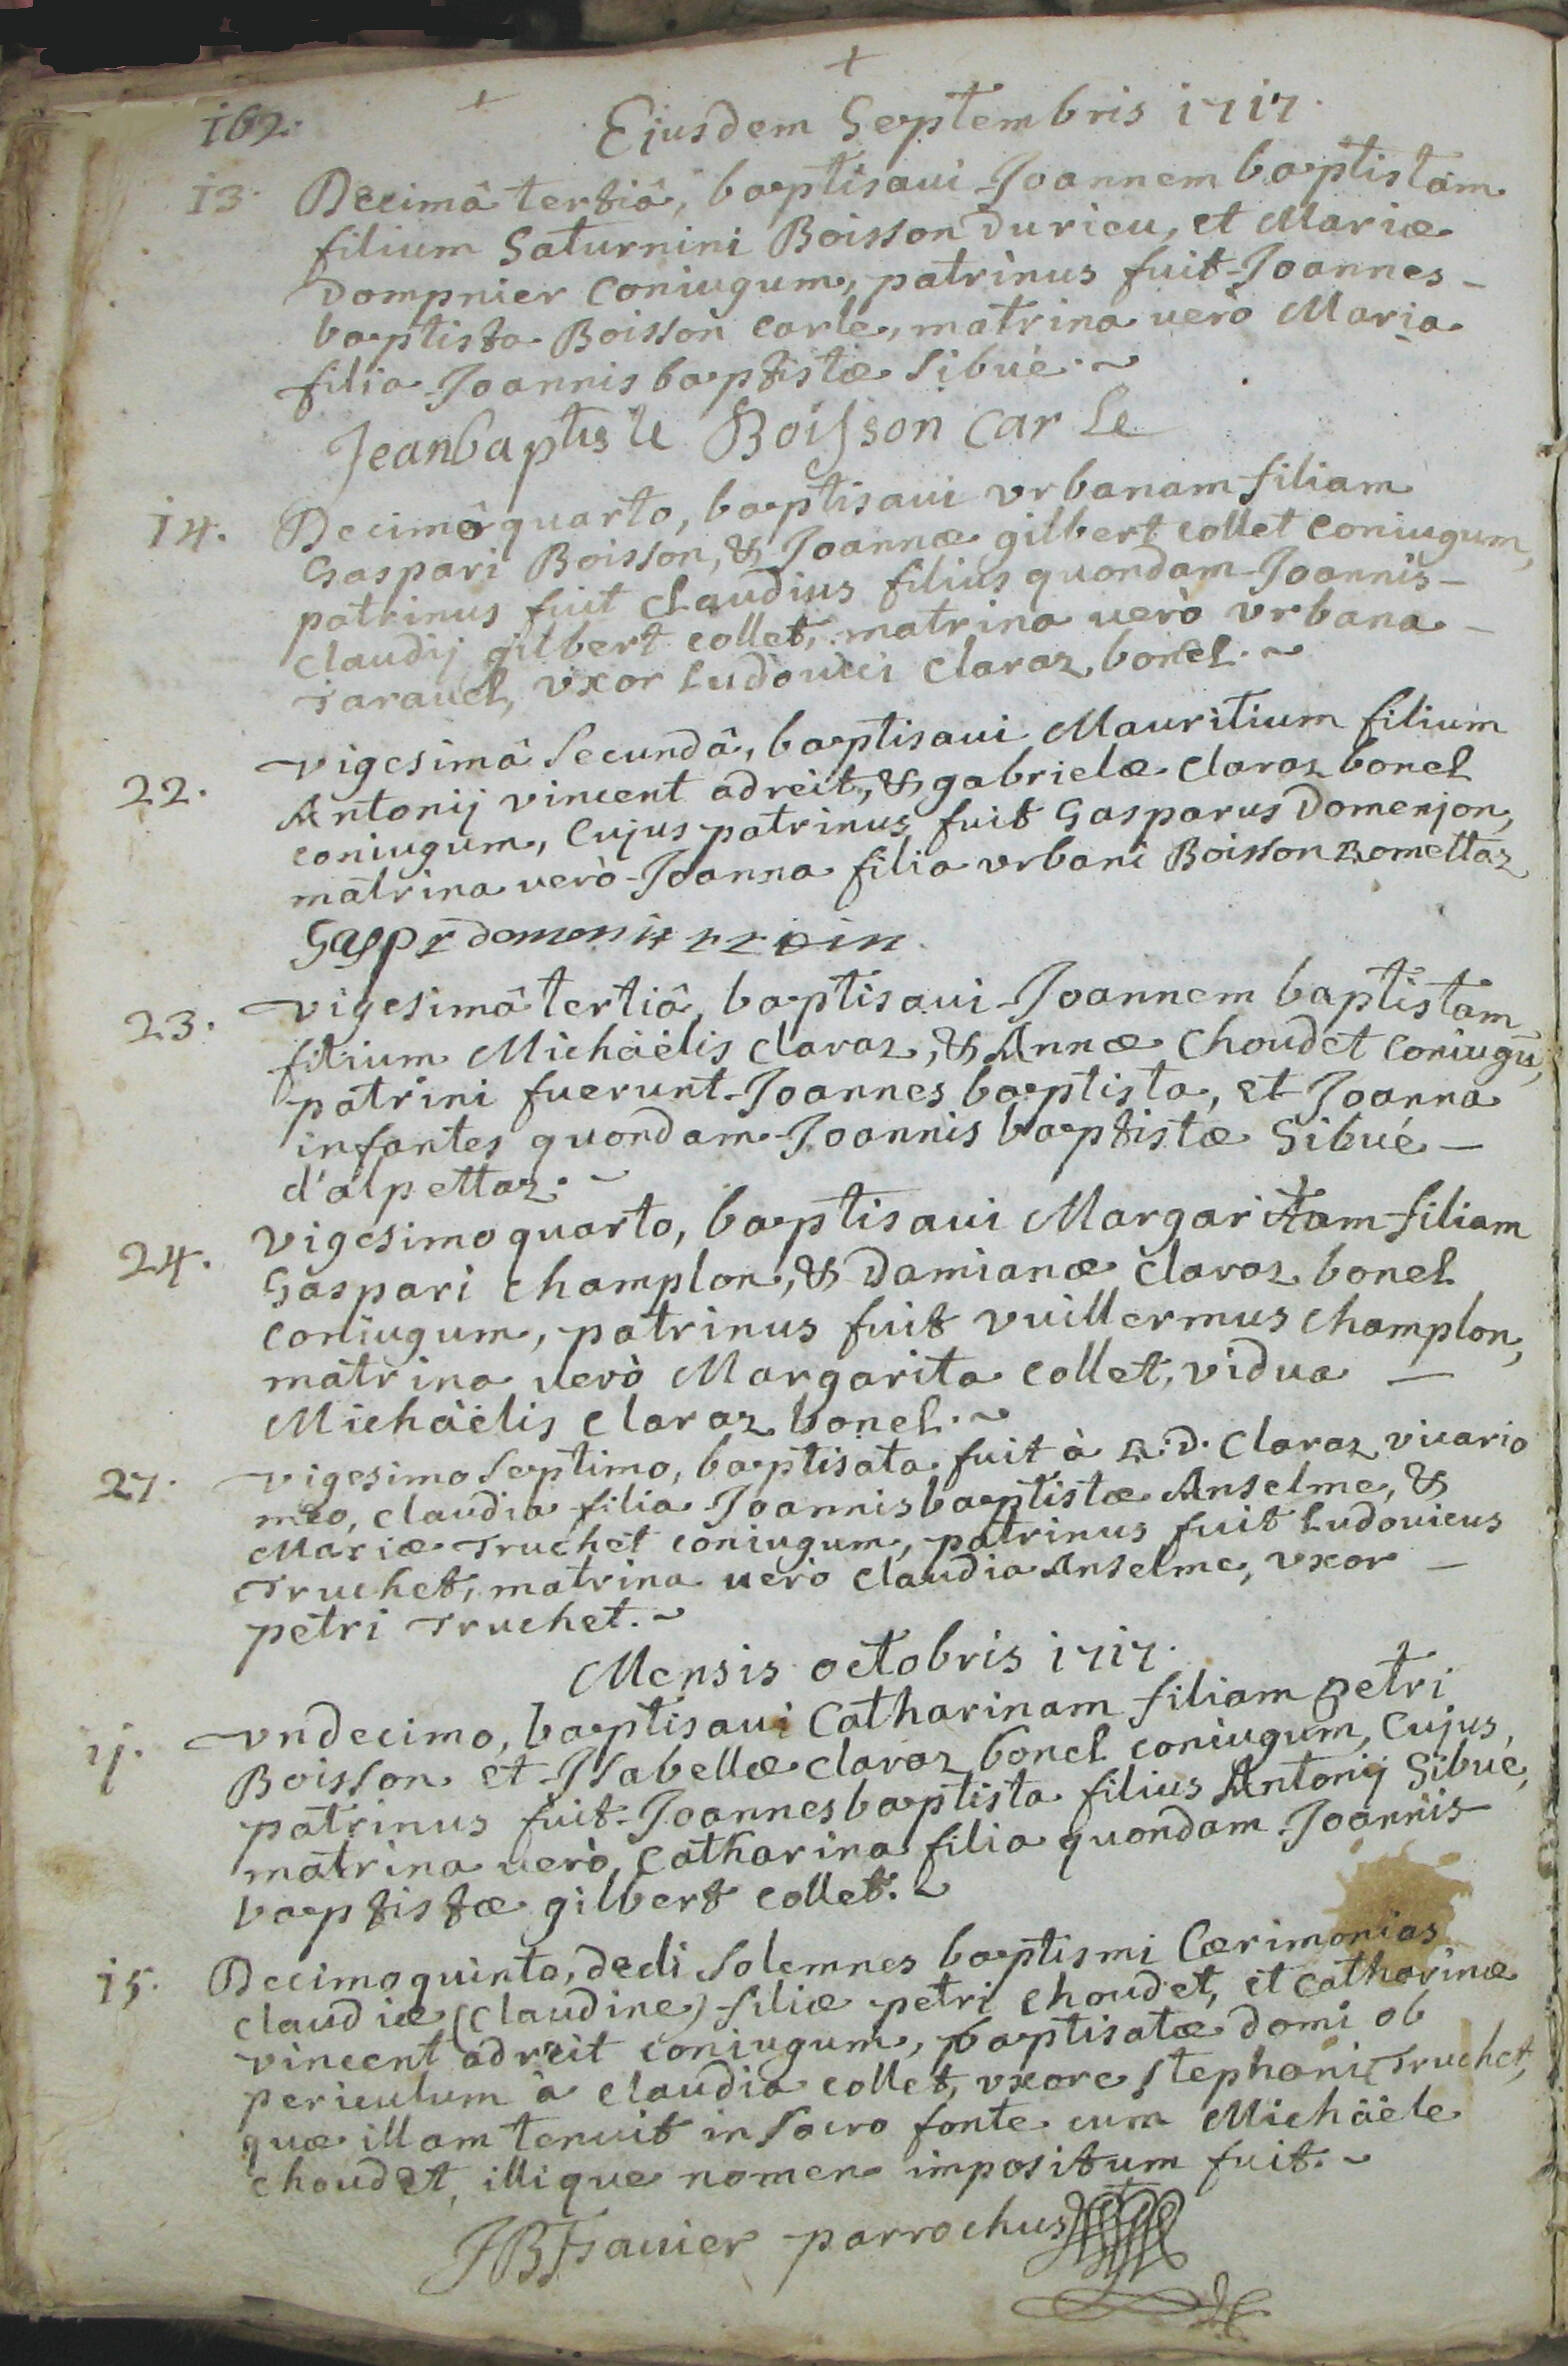 162.
Ejusdem Septembris 1717.
13. Decimâ tertiâ, baptisaui Joannem baptistam
filium Saturnini Boisson durieu, et Mariæ
Dompnier coniugum, patrinus fuit Joannes
baptista Boisson carle, matrina uerò Maria
filia Joannis baptistæ Sibué.
Jeanbaptiste Boisson Carle
14. Decimo quarto, baptisaui vrbanam filiam
Gaspari Boisson, & Joannæ gilbert collet coniugum,
patrinus fuit claudius filius quondam Joannis
claudij gilbert collet, matrina uerò vrbana
Tarauel, vxor Ludouici claraz bonel.
22. vigesimâ secundâ, baptisaui Mauritium filium
Antonij vincent adreit, & gabrielæ claraz bonel
coniugum, cujus patrinus fuit Gasparus Domenjon,
matrina uerò Joanna filia vrbani Boisson Romettaz
Gaspr
23. vigesimâ tertiâ, baptisaui Joannem baptistam
filium Michäelis claraz, & Annæ choudet coniugū,
patrini fuerunt Joannes baptista, et Joanna
infantes quondam Joannis baptistæ Sibué
d'alpettaz.
24. vigesimo quarto, baptisaui Margaritam filiam
Gaspari champlon, & Damianæ claraz bonel
coniugum, patrinus fuit vuillermus champlon,
matrina uerò Margarita collet, vidua
Michäelis claraz bonel.
27. vigesimo septimo, baptisata fuit à R.D. claraz vicario
meo, claudia filia Joannis baptistæ Anselme, &
Mariæ Truchet coniugum, patrinus fuit Ludouicus
Truchet, matrina uerò claudia Anselme, vxor
petri Truchet.
Mensis octobris 1717.
11. vndecimo, baptisaui Catharinam filiam petri
Boisson et Isabellæ claraz bonel coniugum, cujus
patrinus fuit Joannes baptista filius Antonij Sibué,
matrina uerò, catharina filia quondam Joannis
baptistæ gilbert collet.
15. Decimo quinto, dedi solemnes baptismi Cærimonias
claudiæ (claudine) filiæ petri choudet, et catharinæ
vincent adreit coniugum, baptisatæ domi ob
periculum à claudia collet, vxore stephani Truchet,
quæ illam tenuit in sacro fonte cum Michäele
choudet, illique nomen impositum fuit.
JB Favier parrochus